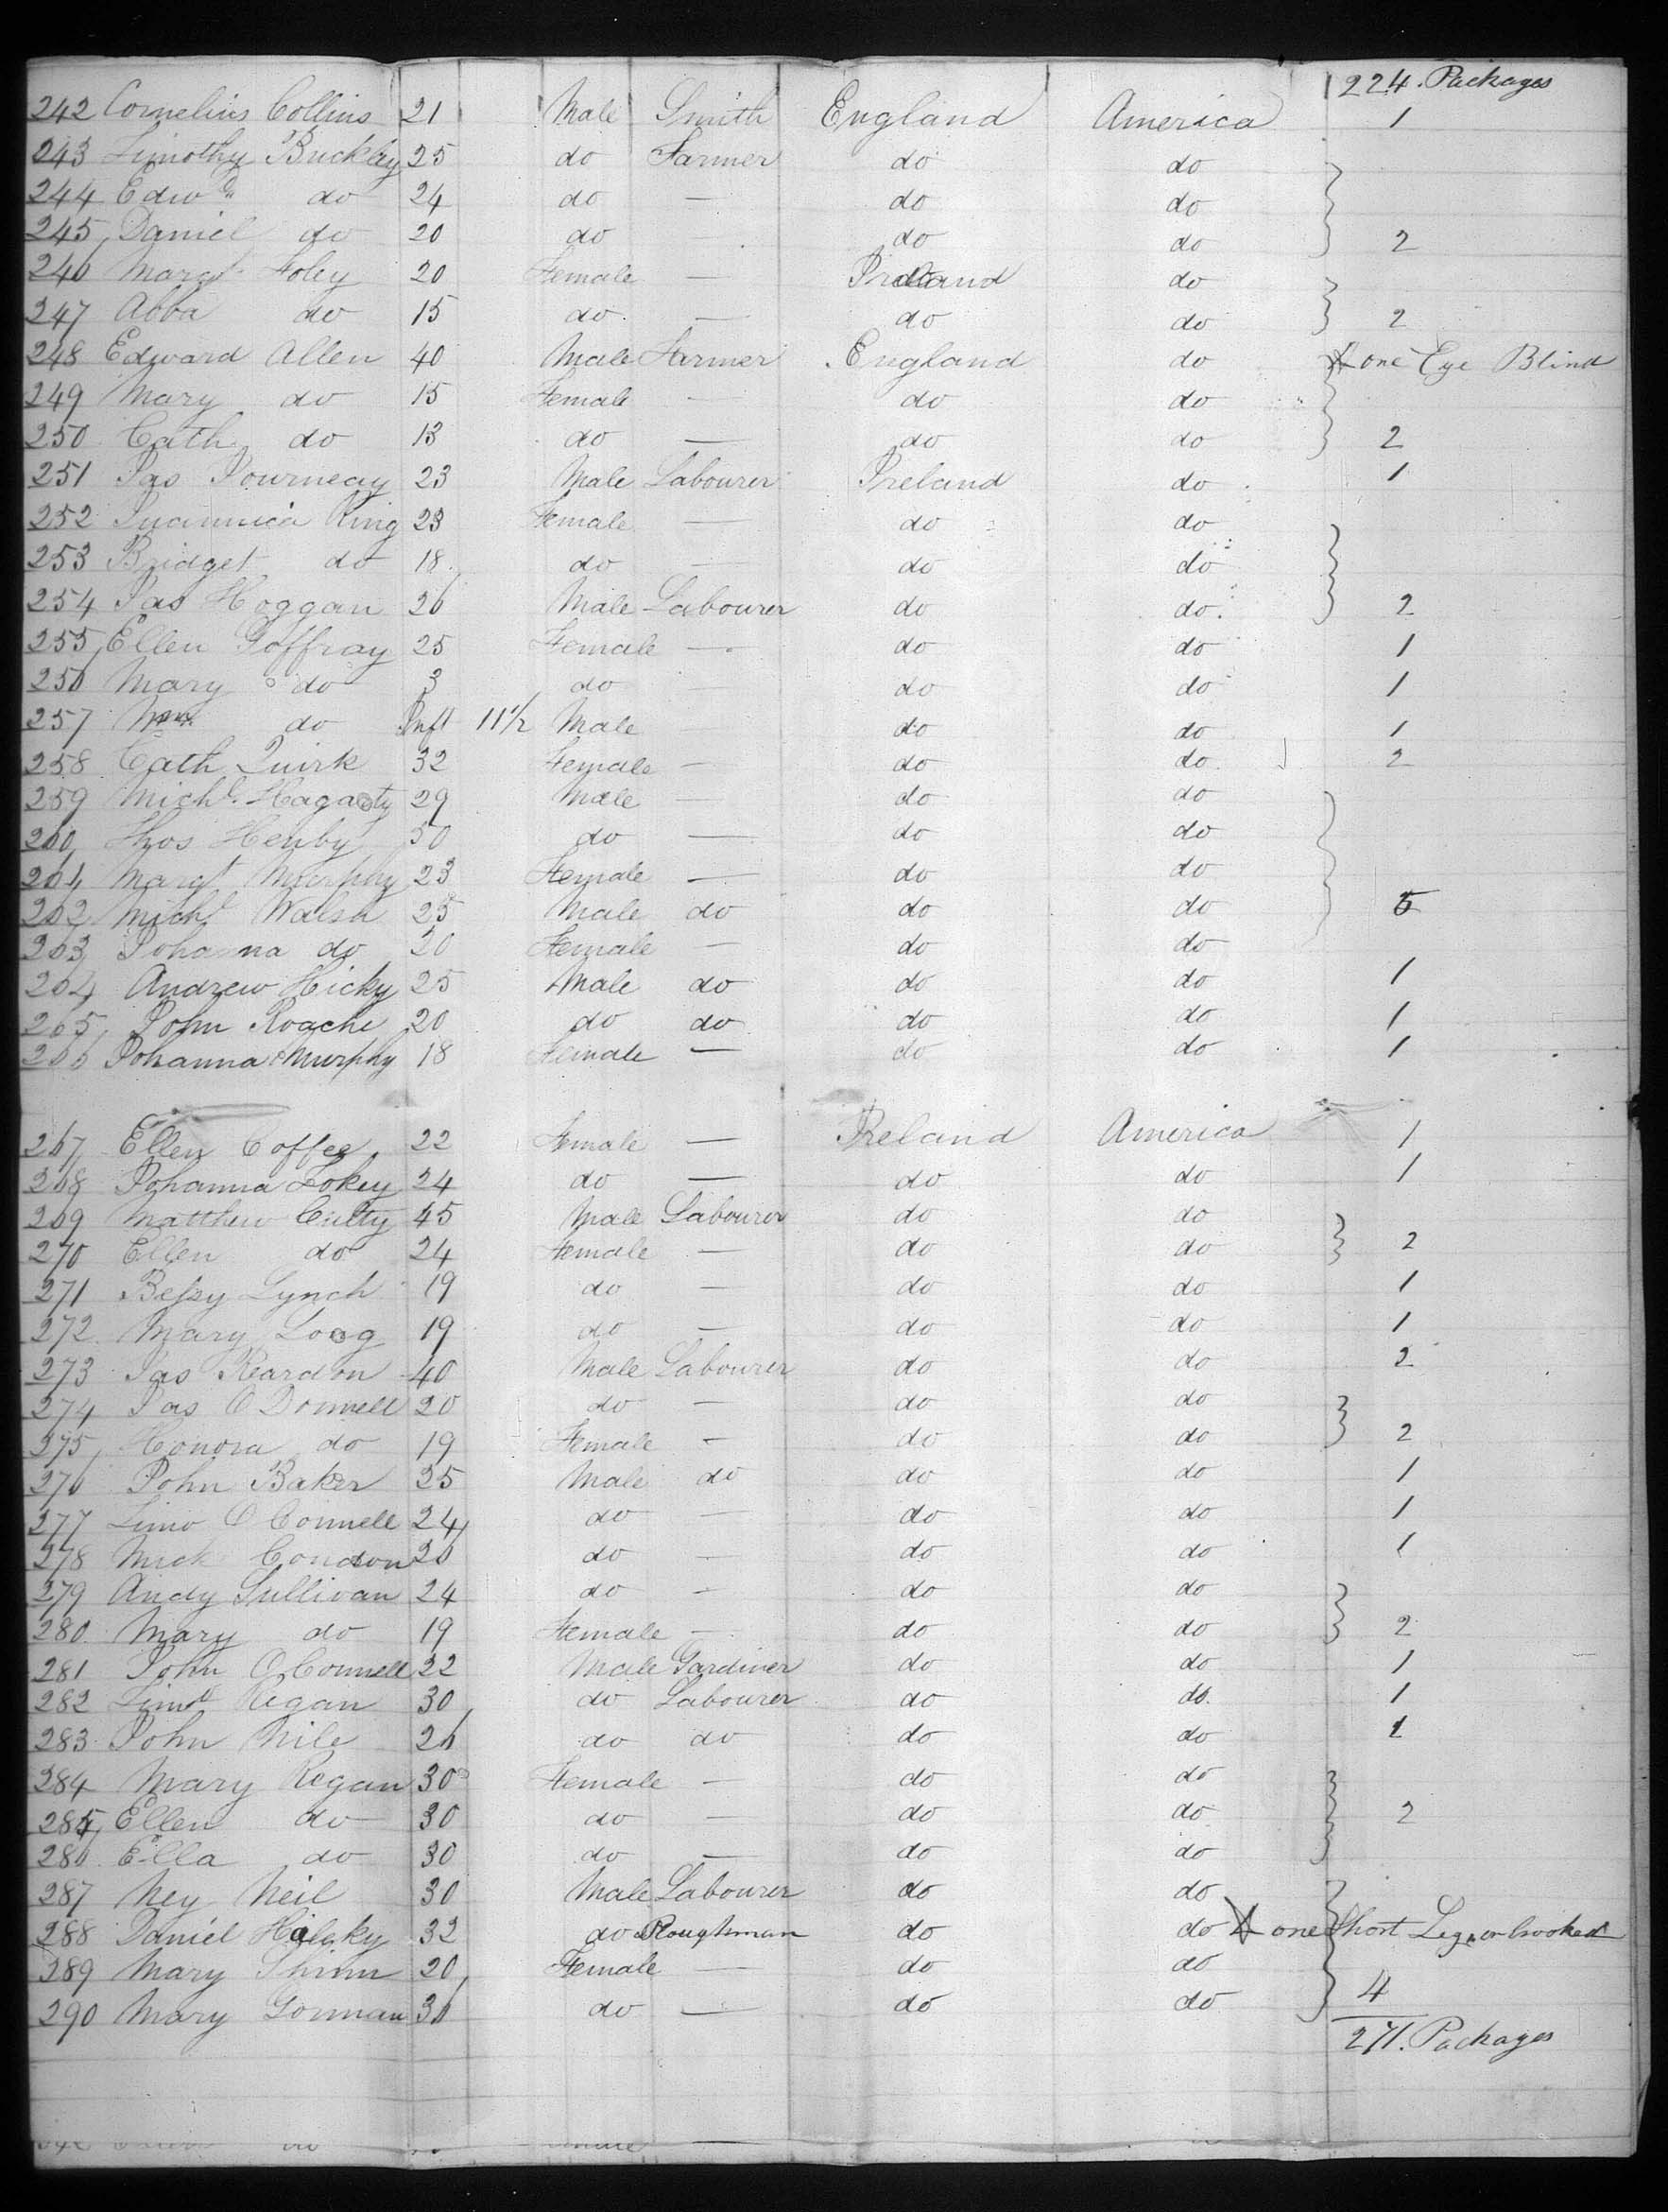 224. Packages
242 Cornelius Collins 21 Male Smith England America 1
243 Timothy Buckley 25 do Farmer do do
244 Edwd do 24 do — do do
245 Daniel do 20 do do do 2
246 Margt Foley 20 Female — Ireland do
247 Abba do 15 do — do do 2
248 Edward Allen 40 Male Farmer England do one Eye Blind
249 Mary do 15 Female - do do
250 Cath do 13 do — do do 2
251 Jas Journeay 23 Male Labourer Ireland do 1
252 King 23 Female — do do
253 Bridget do 18 do — do do
254 Jas Hoggan 26 Male Labourer do do 2
255 Ellen Joffray 25 Female — do do 1
256 Mary do 3 do — do do 1
257 Wm do Inft 11½ Male — do do 1
258 Cath Quirk 32 Female — do do 2
259 Michl. Hagarty 29 Male — do do
260 Thos Henby 50 do — do do
261 Margt Murphy 23 Female — do do
262 Michl Walsh 25 Male do do do 5
263 Johanna do 20 Female — do do
264 Andrew Hicky 25 Male do do do 1
265 John Roache 20 do do do do 1
266 Johanna Murphy 18 Female — do do 1
267 Ellen Coffee 22 Female — Ireland America 1
268 Johanna Fokey 24 do — do do 1
269 Matthew Culty 45 Male Labourer do do
270 Ellen do 24 Female — do do 2
271 Bessy Lynch 19 do — do do 1
272 Mary Long 19 do — do do 1
273 Jas Reardon 40 Male Labourer do do 2
274 Jas O Donnell 20 do — do do
275 Honora do 19 Female — do do 2
276 John Baker 25 Male do do do 1
277 Timo O Connell 24 do — do do 1
278 Mick Condon 26 do — do do 1
279 Andy Sullivan 24 do — do do
280 Mary do 19 Female — do do 2
281 John O Connell 22 Male Gardiner do do 1
282 Timo Regan 30 do Labourer do do 1
283 John Nile 26 do do do do 1
284 Mary Regan 30 Female — do do
285 Ellen do 30 do — do do 2
286 Ella do 30 do — do do
287 Ney Neil 30 Male Labourer do do
288 Daniel 32 do Ploughman do do one Short Leg or Crooked
289 Mary 20 Female — do do
290 Mary Gorman 36 do — do do 4
271. Packages